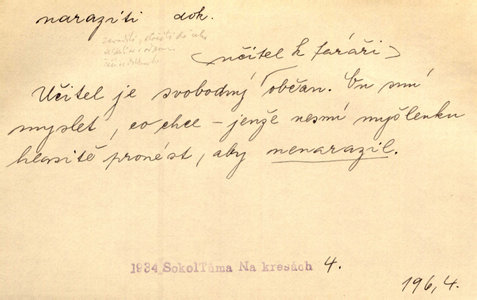 naraziti dok.
(učitel k faráři)
Učitel je svobodný občan. On smí
myslet, co chce – jenže nesmí myšlenku
hlasitě pronést, aby nenarazil.
1934 SokolTůma Na kresách 4.
196,4.